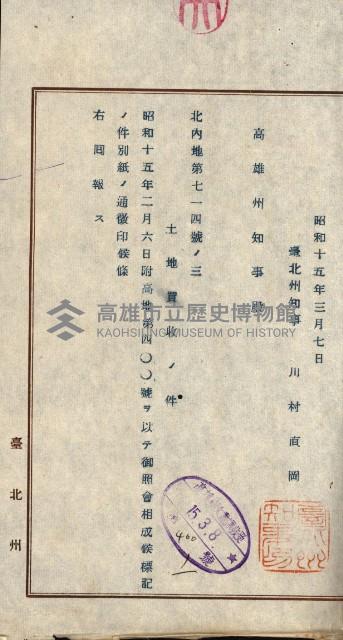 昭和十五年三月七日
臺北州知事 川村直岡
高雄州知事殿
北內地第七一四號ノ三
土地買收ノ件
昭和十五年二月六日附高地第四〇〇號ヲ以テ御照會相成候標記
ノ件別紙ノ通徵印候條
右囘報ス
臺北州
高雄市立歷史博物館
KAOHSIUNG MUSEUM OF HISTORY
15.3.8
400
號